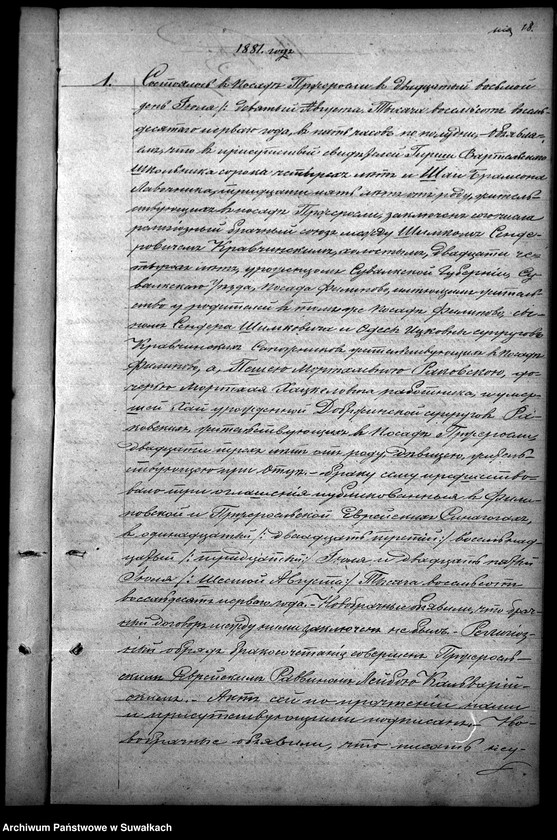 28.
1881. года
1. Состоялось в Посаде Пржеросли в Двадцать восьмой
день Iюля /: Девятый Августа. Тысяча восемьсот восемь-
десятаго перваго года, в пять часов по полудни,- Объявля-
ем, что в присутствии свидетелей Гирши
Школьника сорока четырех лет и
тридцати пять лет от роду, житель-
ствующих в посаде Пржеросли, заключен сего числа
религiозный брачный союз между Шимхом Сенде-
ровичем Кравчинским, холостым, двадцати че-
тырех лет, урожденцом Сувалкской Губернiи, Су-
валкскаго Уезда, Посада Филипово, имеющим житель-
ство у родителей в том же Посаде Филипово, сы-
ном Сендера Шимховича и Ицковны супругов
Кравчинских жительствующих в Посаде
Филипово, а, Пешею Мортхелевною Раковскою, до-
черью Мортхеля Хацкелевича работника, и умер-
шей Хаи урожденной супругов Ра-
ковских жительствующих в Посаде Пржеросли,
двадцати трех лет от роду, девицею, житель-
ствующею при Отце.- Браку сему предшество-
вало три оглашенiя публикованныя в Фили-
повской и Пржеросльской Еврейских Синагогах,
в одинадцатый /: двадцать третiй:/ восьмнад-
цатый /: тридцатый:/ Iюля и двадцать пятый
Iюля /: Шестой Августа:/ Тысяча восемьсот
восемдесять перваго года.- Новобрачные заявили, что брач-
ный договор между ними заключен не был.- Религiоз-
ный обряд бракосочетанiя совершен Пржеросль-
ским Еврейским Раввином Лейбою Кальварiй-
ским.- Акт сей по прочтенiи нами
и присутствующими подписан, Но-
вобрачные объявили, что писать не у-
Archiwum Państwowe w Suwałkach